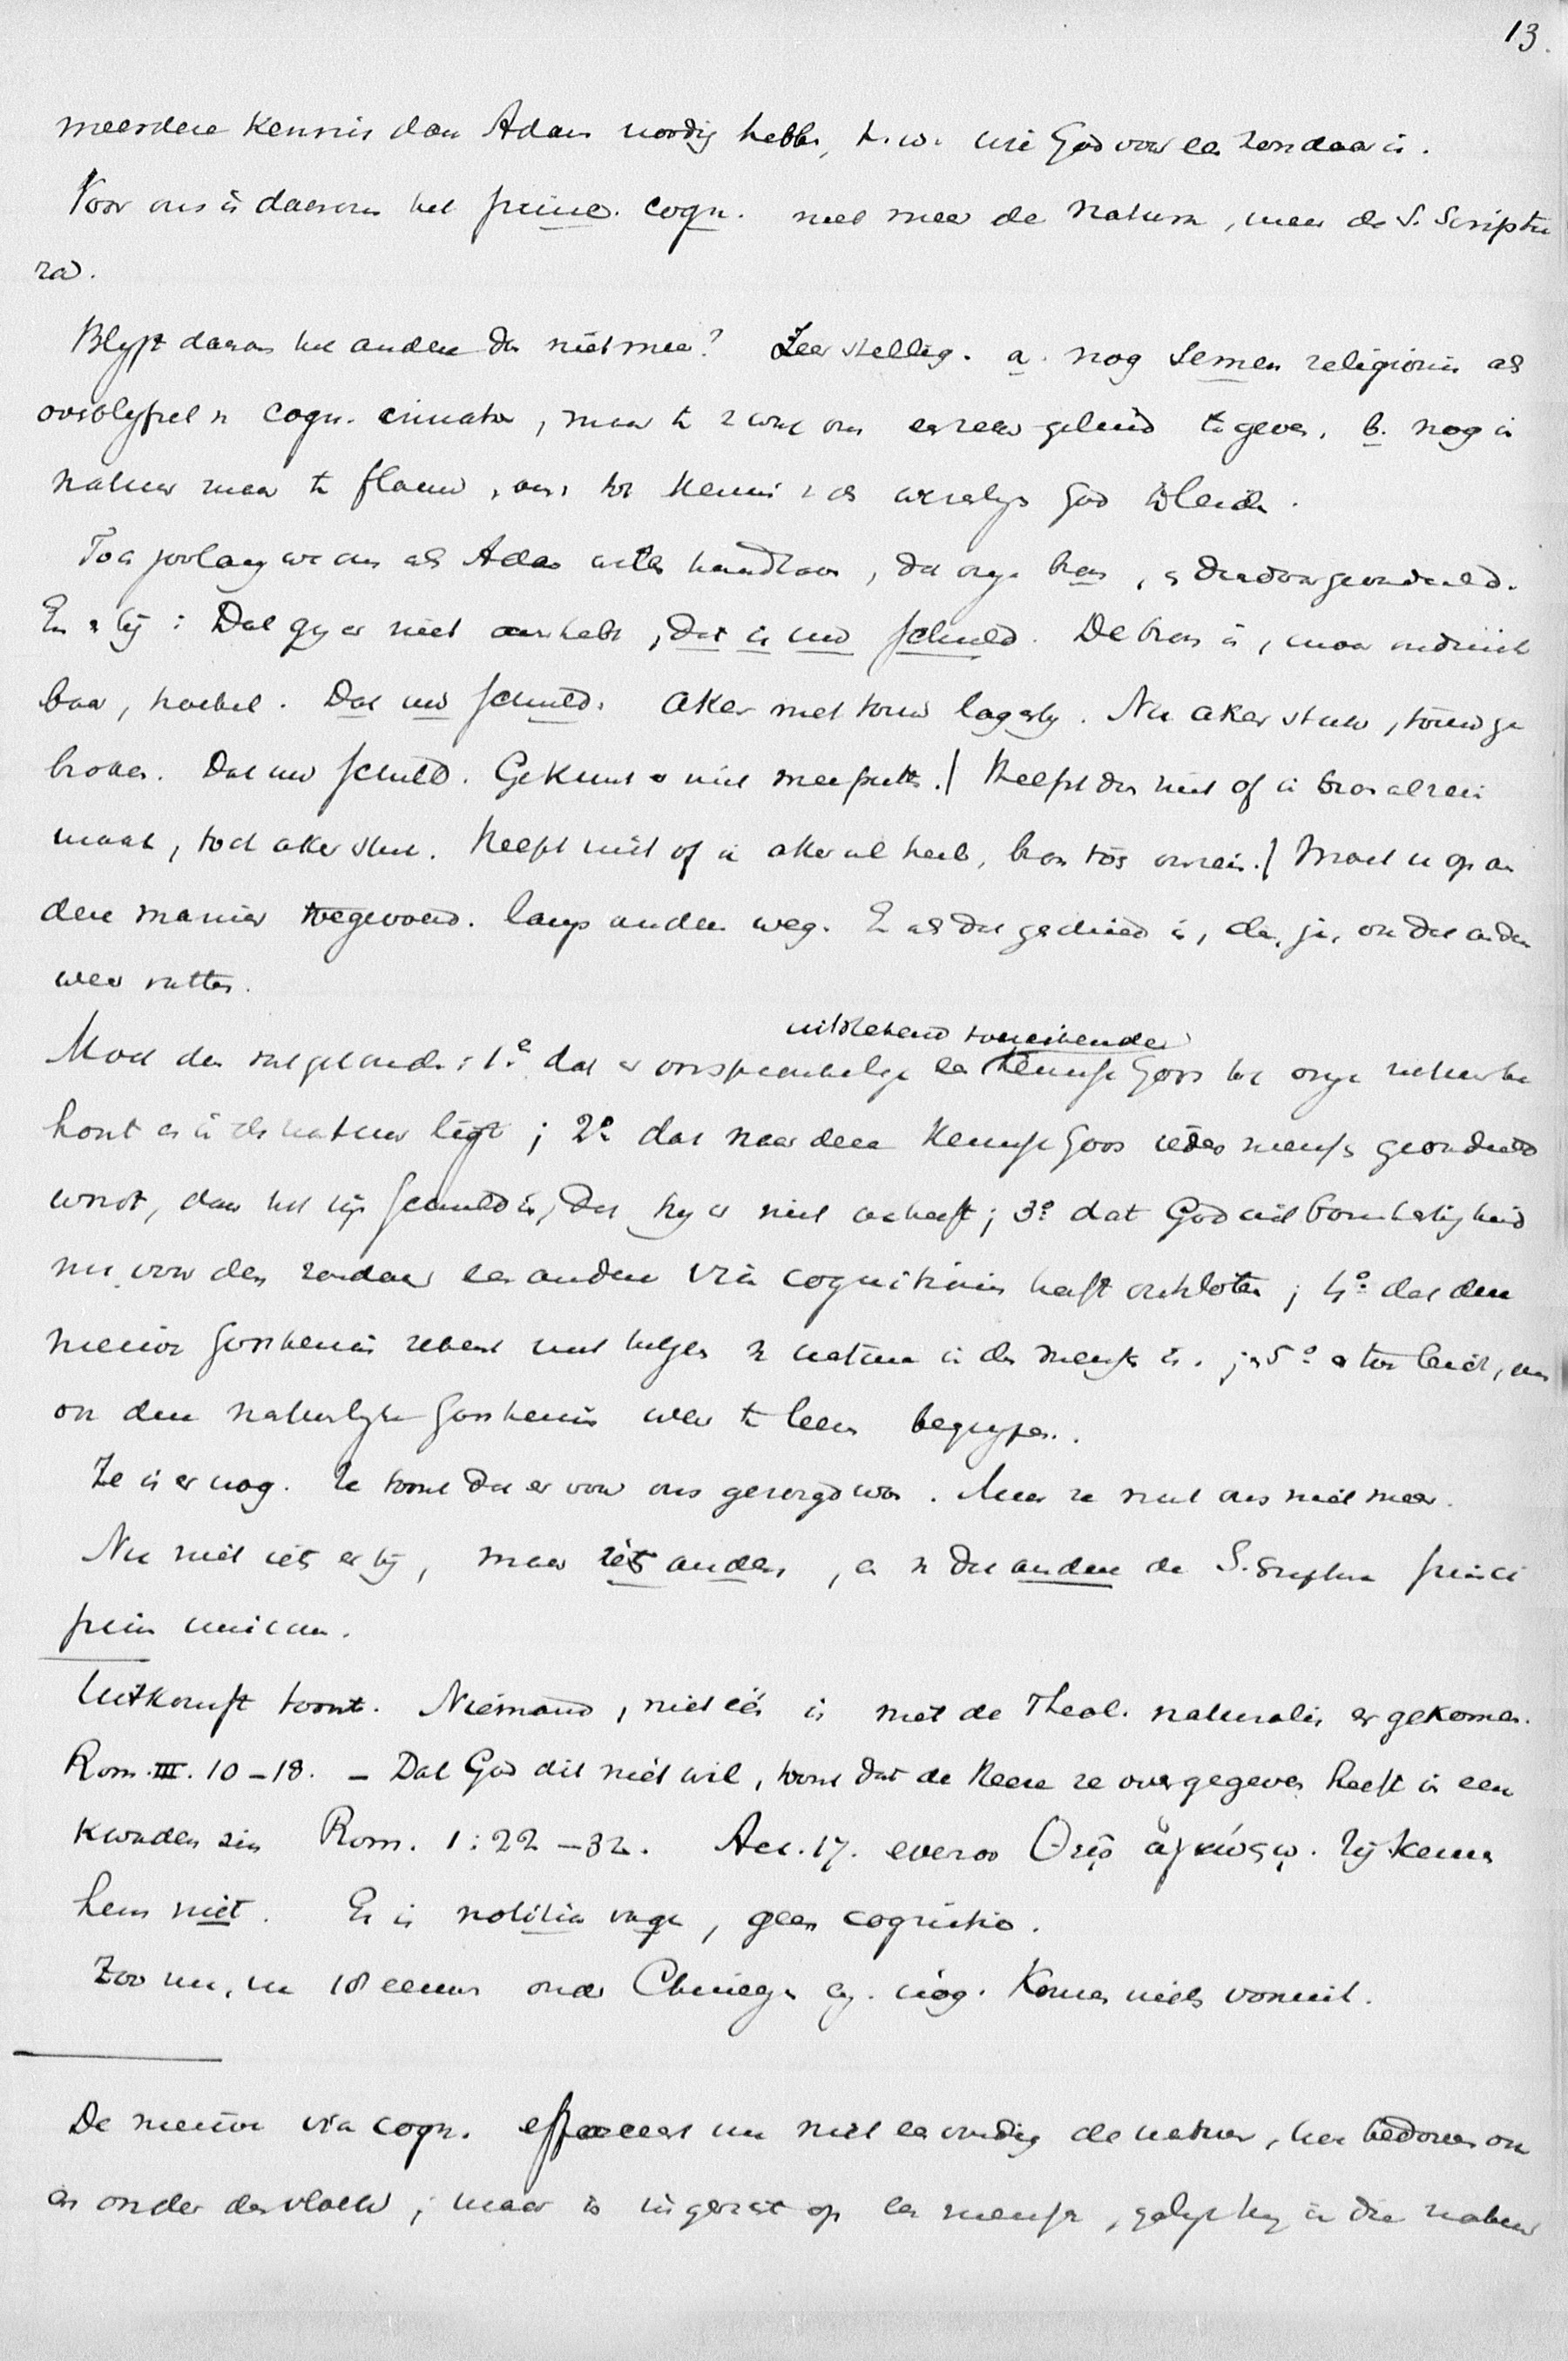 13.
meerdere kennis dan Adam noodig hebbe, t.w. wie God voor een zondaar is.
Voor ons is daarom het princ. cogn. niet meer de natura, maar de S. Scriptu
ra.
Blyft daarom het andere dan niet meer? Zeer stellig. a. nog semen religionis als
overblyfsel v. cogn. innata, maar te zwak om een zeker geluid te geven. b. nog in
natuur maar te flauw, om tot kennis v. de werelyk God te leiden.
Toch zoolang we ons als Adam willen handhaven, dat onze bron, en daardoor geoordeeld.
En zij: Dat gy er niet aan hebt, dat is uw schuld. De bron is, maar ondrink
baar, troebel. Dat uw schuld. Aker met touw lag erby. Nu aker stuk, touw ge
broken. Dat uw schuld. Ge kunt er niet mee putten. / Helpt dus niet of ik bron al rein
maak, toch aker stuk. Helpt niet of ik aker al heel, bron toch onrein. / Moet u op an
dere manier toegevoerd. langs anderen weg. En als dat geschied is, dan, ja, ook dat andere
weer vatten.
uitstekend toereikende
Moet dus vastgehouden: 1e dat er oorspronkelyk een kennisse Gods tot onze natuur be
hoort en in de natuur ligt; 2o dat naar deze kennisse Gods ieder mensch geoordeeld
wordt, daar het zijn schuld is, dat hy er niet aan heeft; 3o dat God uit barmhartigheid
nu voor den zondaar een andere via cognitionis heeft ontsloten; 4o dat deze
nieuwe Godskennis rekent met hetgeen v. natura in den mensch is; en 5o er toe leidt, om
ook deze natuurlyke Godskennis weer te leeren begrypen.
Ze is er nog. Ze toont dat er voor ons gezorgd was. Maar ze redt ons niet meer.
Nu niet iets er bij, maar iets anders, en v. dat andere de S. Scriptura princi
pium unicum.
Uitkomst toont. Niemand, niet één is met de Theol. naturalis er gekomen.
Rom. III. 10-18. - Dat God dit niet wil, toont dat de Heere ze overgegeven heeft in een
kwaden zin Rom. 1:22-32. Act. 17. evenzoo Θεῷ ἀγνώστῳ. Zij kennen
hem niet. Er is notitia vaga, geen cognitio.
Zoo nu, na 18 eeuwen onder Chineezen enz. nog. Komen niets vooruit.
De nieuwe via cogn. effaceert nu niet eenvoudig de natuur, haar bedorven
en onder den vloek; maar is ingericht op een mensch, gelyk hy in die natuur